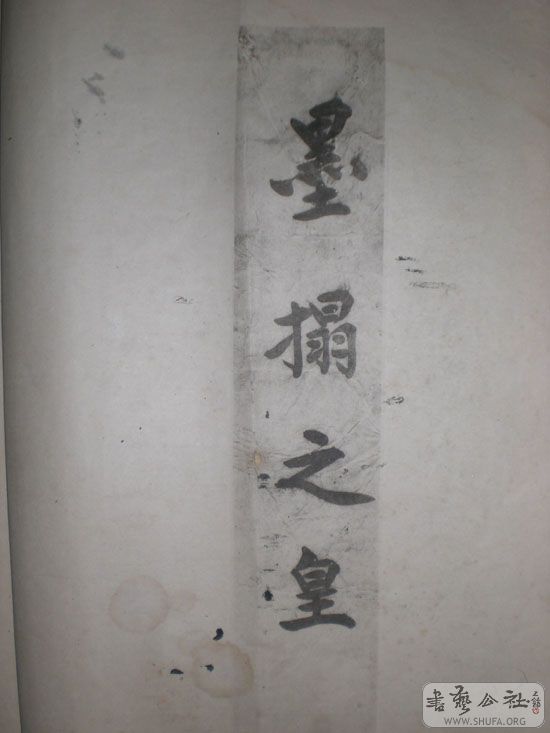 墨搨之皇
書藝公社
WWW.SHUFA.ORG